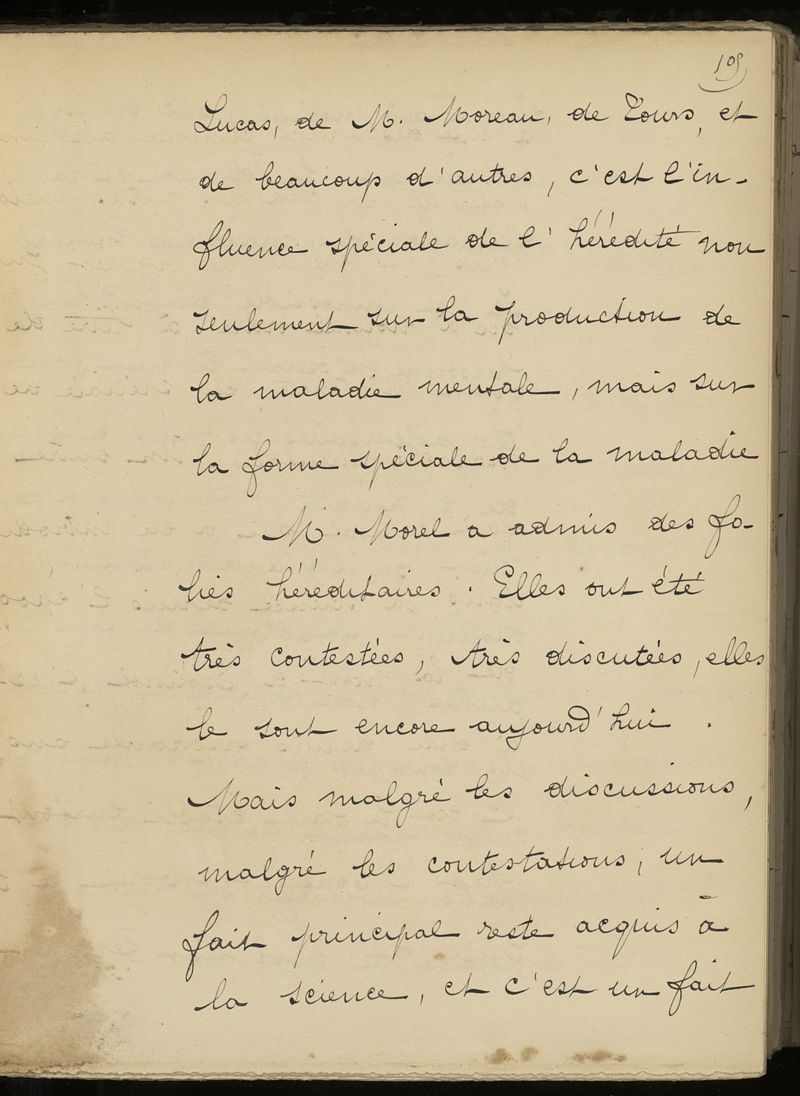 109
Lucas, de M. Moreau, de Tours, et
de beaucoup d'autres, c'est l'in-
fluence spéciale de l'hérédité non
seulement sur la production de
la maladie mentale, mais sur
la forme spéciale de la maladie
M. Morel a admis des fo-
lies héréditaires. Elles ont été
très contestées, très discutées, elles
le sont encore aujourd'hui.
Mais malgré les discussions,
malgré les contestations, un
fait principal reste acquis à
la science, et c'est un fait